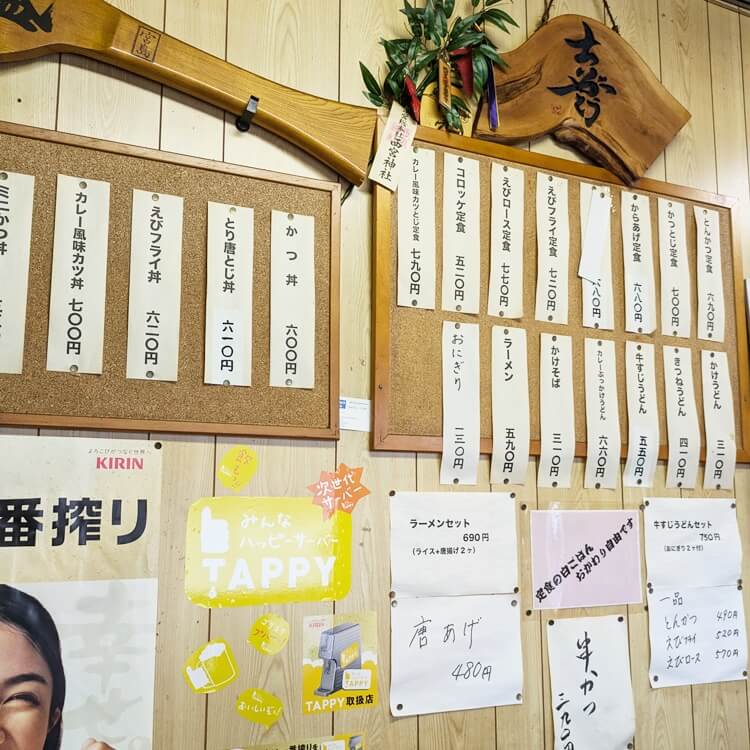 宮島
宮本社西宮神社
とんかつ定食 六九〇円
かつとじ定食 七〇〇円
からあげ定食 六八〇円
八〇円
えびフライ定食 七二〇円
えびロース定食 七七〇円
コロッケ定食 五二〇円
カレー風味カツとじ定食 七九〇円
かけうどん 三一〇円
きつねうどん 四一〇円
牛すじうどん 五五〇円
カレーぶっかけうどん 六六〇円
かけそば 三一〇円
ラーメン 五九〇円
おにぎり 一三〇円
かつ丼 六〇〇円
とり唐とじ丼 六一〇円
えびフライ丼 六二〇円
カレー風味カツ丼 七〇〇円
ミニかつ丼
よろこびがつなぐ世界へ
KIRIN
番搾り
次世代
サーバー
みんな
ハッピーサーバー
TAPPY
おいしいぞ!
KIRIN
TAPPY取扱店
一番搾りを
ラーメンセット
690円
(ライス+唐揚げ2ヶ)
唐あげ
480円
定食の白ごはん
おかわり自由です
牛すじうどんセット
750円
(おにぎり2ヶ付)
一品
とんかつ 490円
えびフライ 520円
えびロース 570円
串かつ